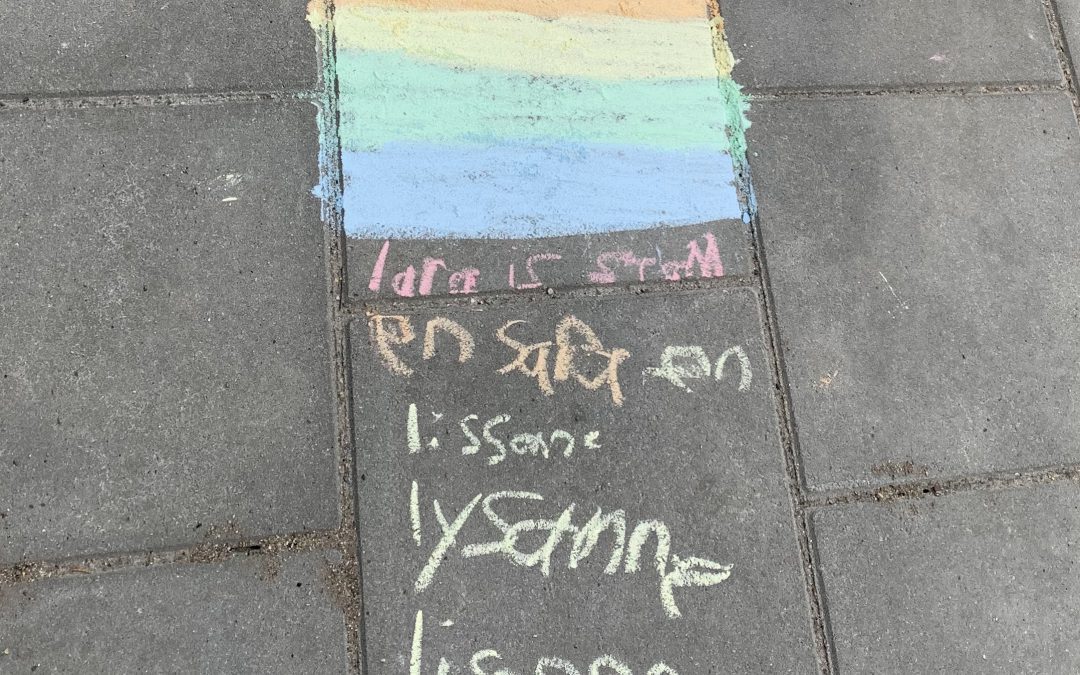 lara is stom
en
en
lissane
lysanne
lisann